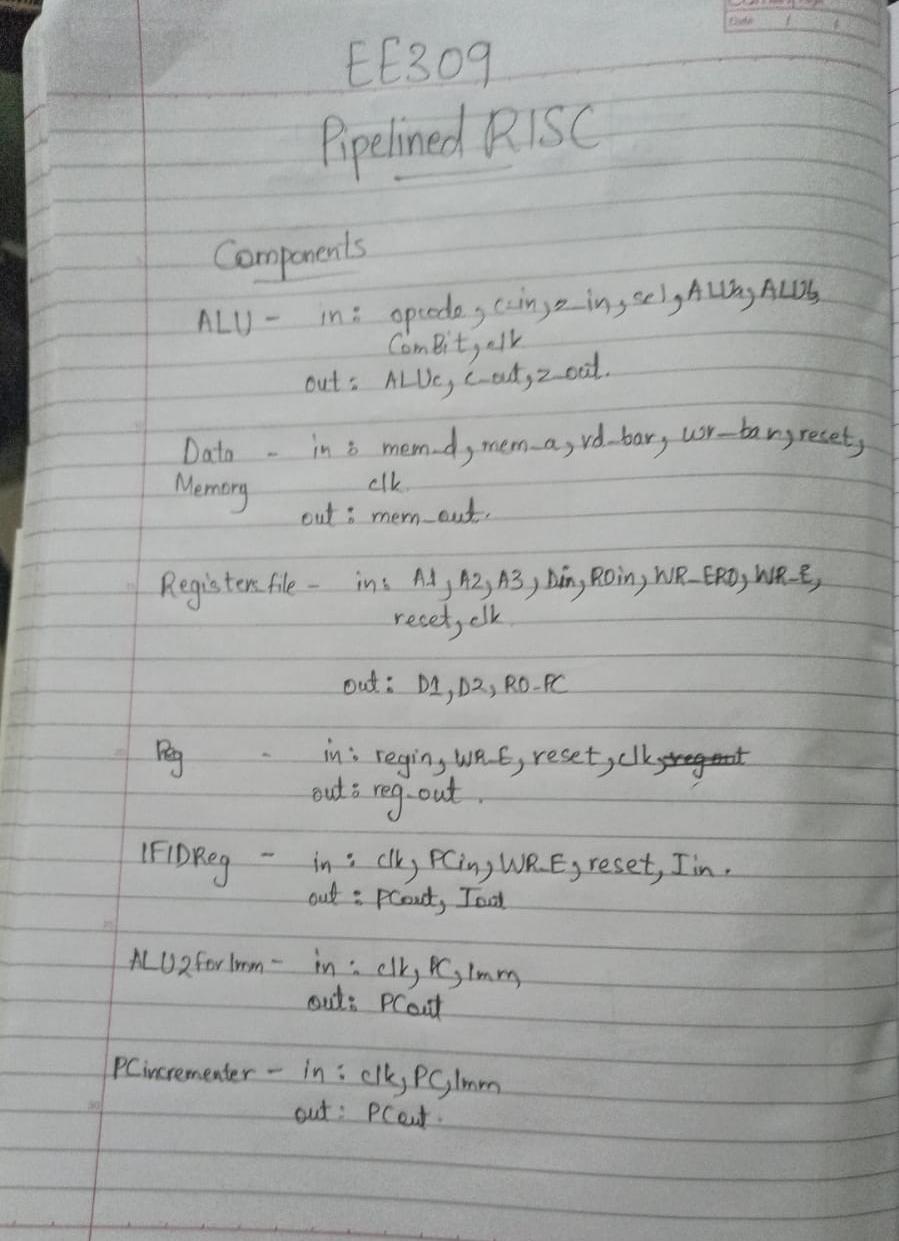 Date / /
EE309
Pipelined RISC
Components
ALU - in: opcode, c_in, z_in, sel, ALUa, ALUb,
ComBit, clk
out: ALUc, c_out, z_out.
Data - in: mem_d, mem_a, rd_bar, wr_bar, reset,
Memory clk.
out: mem_out.
Registers file - in: A1, A2, A3, Din, R0in, WR_ER0, WR_E,
reset, clk
out: D1, D2, R0_PC
Reg - in: regin, WR_E, reset, clk, regout
out: reg_out.
IFIDReg - in: clk, PCin, WR_E, reset, Iin.
out: PCout, Iout
ALU2forImm - in: clk, PC, Imm,
out: PCout
PCincrementer - in: clk, PC, Imm
out: PCout.